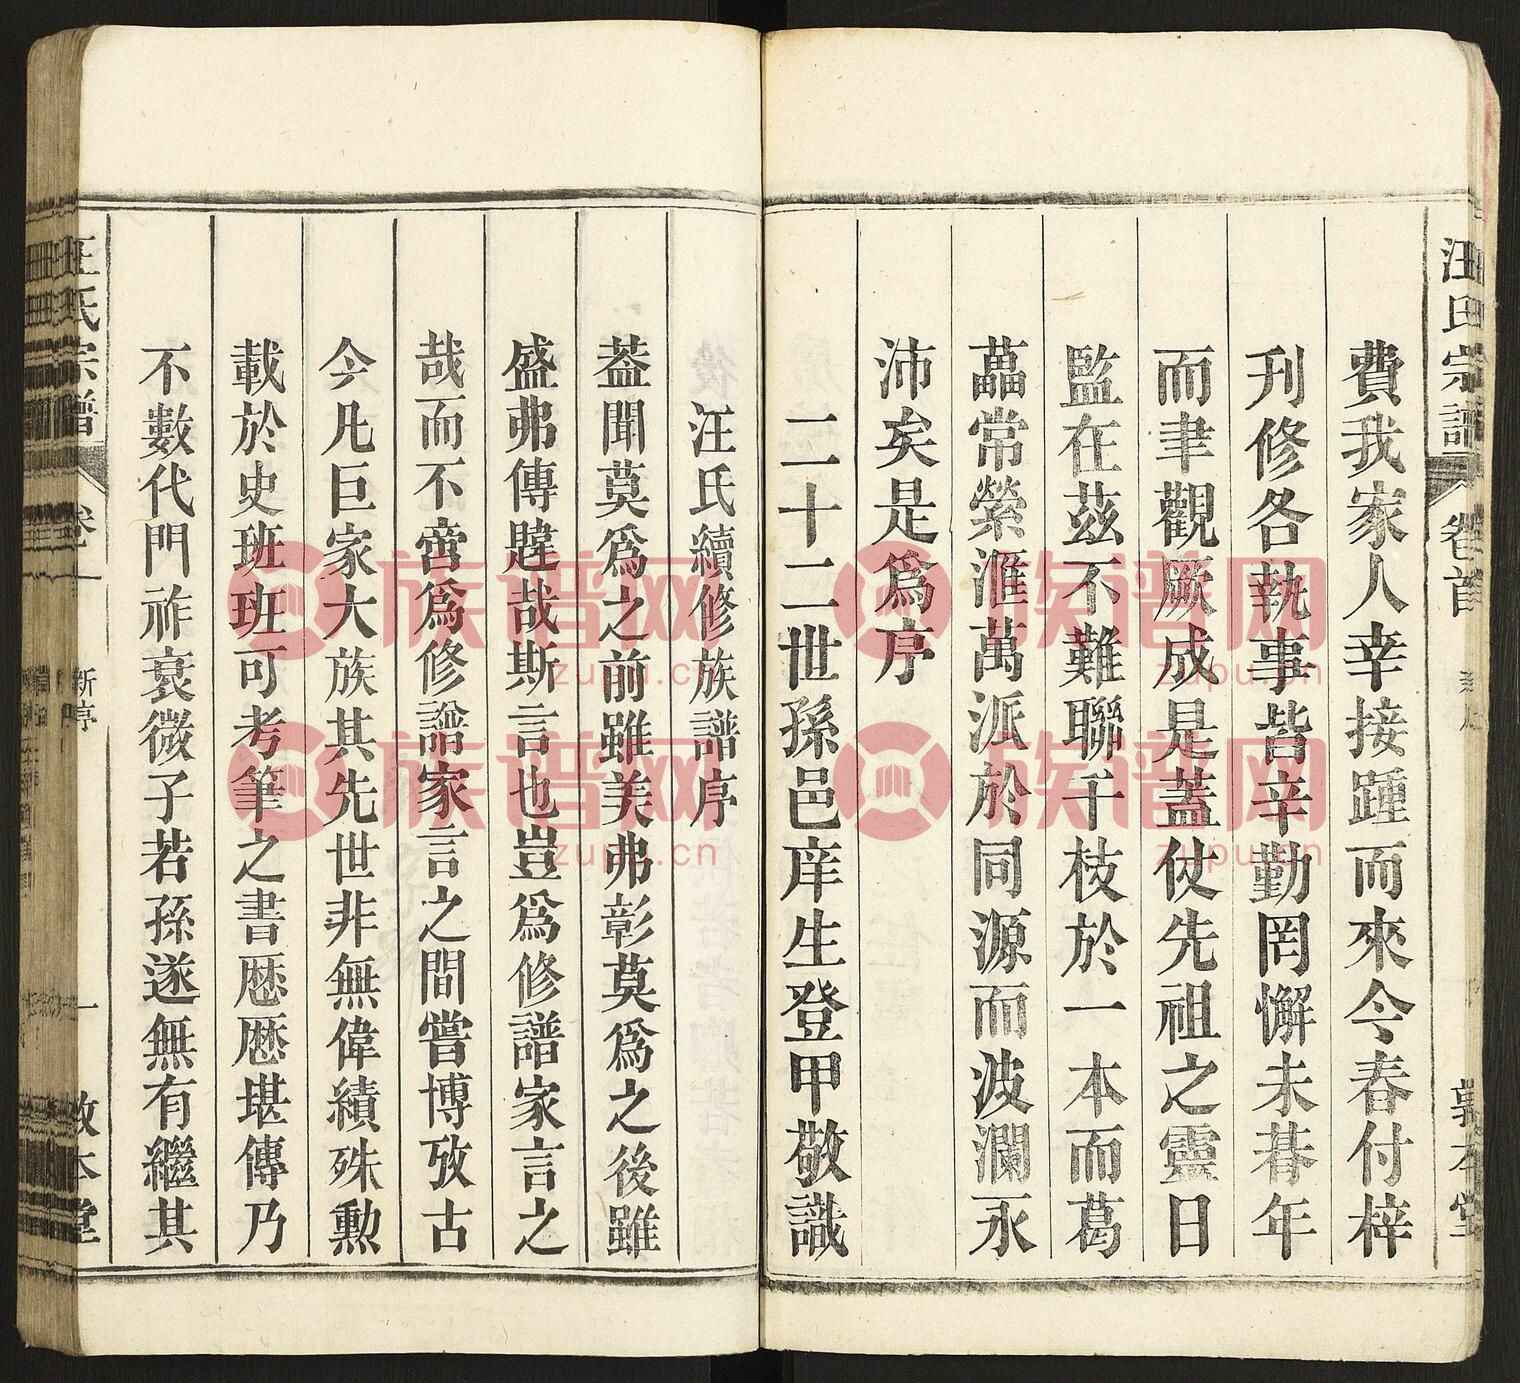 汪氏宗譜 卷首
敦本堂
費我家人幸接踵而來今春付梓
刊修各執事皆辛勤罔懈未朞年
而聿觀厥成是蓋仗先祖之靈日
監在茲不難聯千枝於一本而葛
藟常縈滙萬派於同源而波瀾永
沛矣是爲序
二十二世孫邑庠生登甲敬識
汪氏續修族譜序
葢聞莫爲之前雖美弗彰莫爲之後雖
盛弗傳韙哉斯言也豈爲修譜家言之
哉而不啻爲修譜家言之間嘗博攷古
今凡巨家大族其先世非無偉績殊勲
載於史班班可考筆之書歴歴堪傳乃
不數代門祚衰微子若孫遂無有繼其
汪氏宗譜 卷一
新序
一
敦本堂
族谱网
zupu.cn
族谱网
zupu.cn
族谱网
zupu.cn
族谱网
zupu.cn